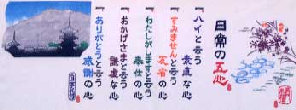 日常の五心
『ハイ』と言う
素直な心
『すみません』と言う
反省の心
『わたしがします』と言う
奉仕の心
『おかげさま』と言う
謙虚な心
『ありがとう』と言う
感謝の心